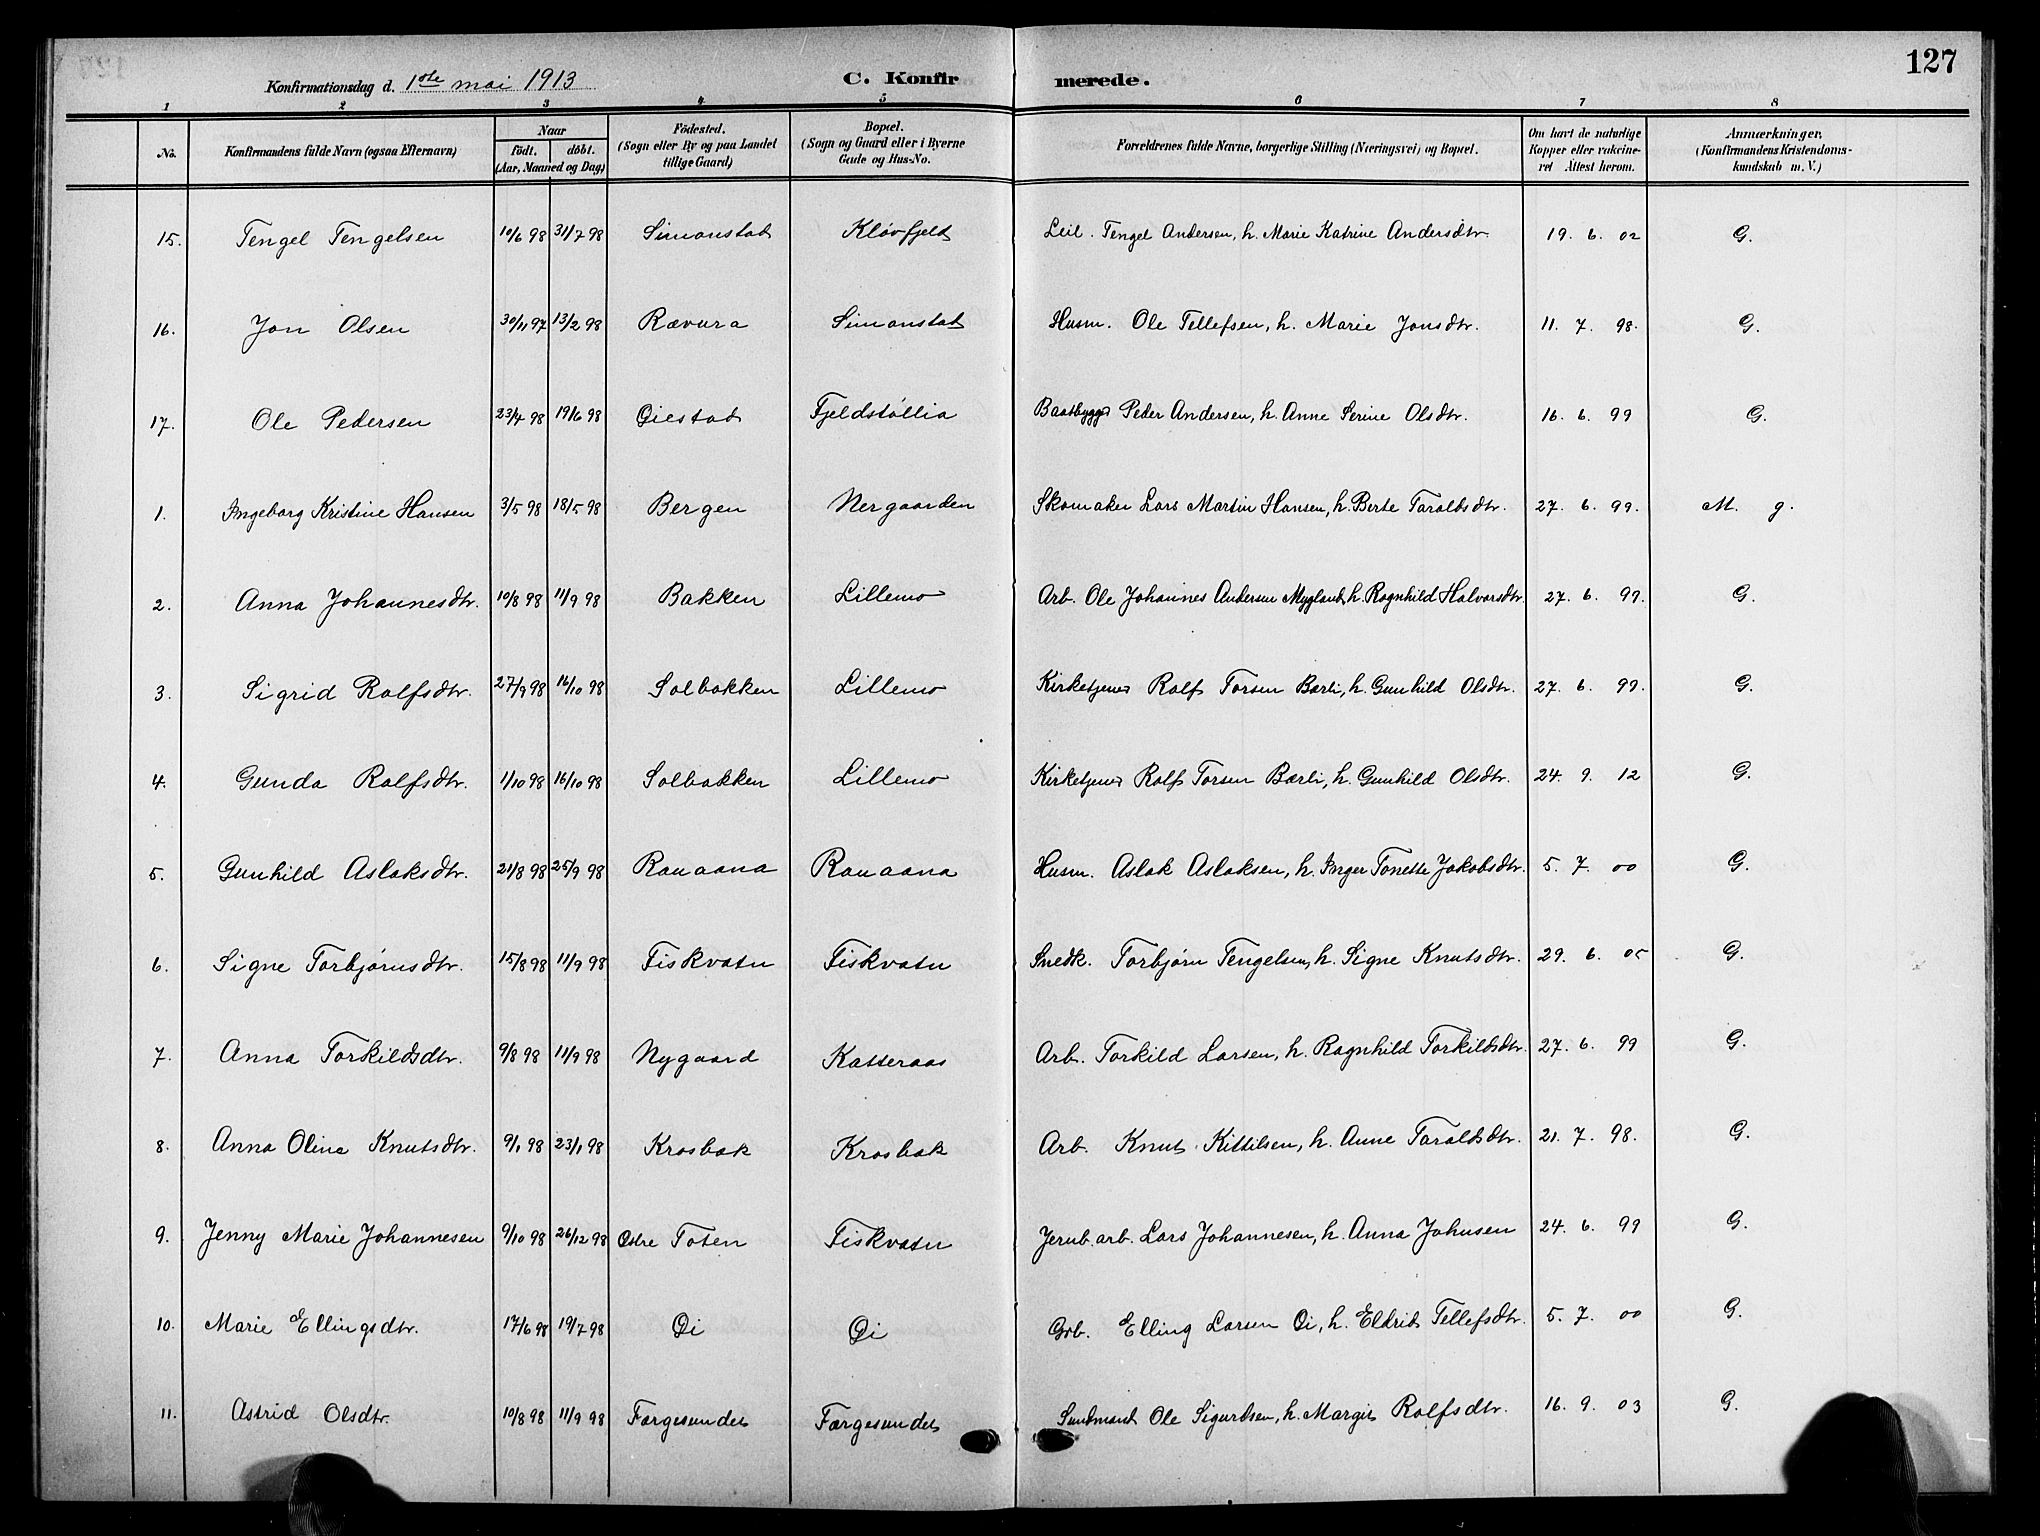 127
Konfirmationsdag d. 1ste mai 1913 C. Konfirmerede.
1 2 3 4 5 6 7 8
No. Konfirmandens fulde Navn (ogsaa Efternavn) Naar födt. döbt. (Aar, Maaned og Dag) Födested. (Sogn eller By og paa Landet tillige Gaard) Bopæl. (Sogn og Gaard eller i Byerne Gade og Hus-No. Forældrenes fulde Navne, borgerlige Stilling (Næringsvei) og Bopæl. Om havt de naturlige Kopper eller vakcineret Attest herom. Anmærkninger. (Konfirmandens Kristendomskundskab m. V.)
15. Tengel Tengelsen 10/6 98 31/7 98 Simonstad Kløvfjeld Leil. Tengel Andersen, h. Marie Katrine Andersdtr. 19. 6. 02 G.
16. Jon Olsen 30/11 97 13/2 98 Rævura Simonstad Husm. Ole Tellefsen, h. Marie Jonsdtr. 11. 7. 98. G.
17. Ole Pedersen 23/4 98 19/6 98 Øiestad Fjeldstøllia Baatbygger Peder Andersen, h. Anne Serine Olsdtr. 16. 6. 99 G.
1. Ingeborg Kristine Hansen 3/5 98 18/5 98 Bergen Nergaarden Skomaker Lars Martin Hansen, h. Berte Taraldsdtr. 27. 6. 99. M. g.
2. Anna Johannesdtr. 10/8 98 11/9 98 Bakken Lillemo Arb. Ole Johannes Andersen Mygland, h. Ragnhild Halvorsdtr. 27. 6. 99. G.
3. Sigrid Rolfsdtr. 27/9 98 16/10 98 Solbakken Lillemo Kirketjener Rolf Torsen Bærli, h. Gunhild Olsdtr. 27. 6. 99. G.
4. Gunda Rolfsdtr. 1/10 98 16/10 98 Solbakken Lillemo Kirketjener Rolf Torsen Bærli, h. Gunhild Olsdtr. 24. 9. 12 G.
5. Gunhild Aslaksdtr. 21/8 98 25/9 98 Rauaana Rauaana Husm. Aslak Aslaksen, h. Inger Tonette Jakobsdtr. 5. 7. 00 G.
6. Signe Torbjørnsdtr. 15/8 98 11/9 98 Fiskvatn Fiskvatn Snedk. Torbjørn Tengelsen, h. Signe Knutsdtr. 29. 6. 05 G.
7. Anna Torkildsdtr. 9/8 98 11/9 98 Nygaard Katteraas Arb. Torkild Larsen, h. Ragnhild Torkildsdtr. 27. 6. 99 G.
8. Anna Oline Knutsdtr. 9/1 98 23/1 98 Krosbak Krosbak Arb. Knut Kittilsen, h. Anne Taraldsdtr. 21. 7. 98. G.
9. Jenny Marie Johannesen 9/10 98 26/12 98 Østre Toten Fiskvatn Jernb. arb. Lars Johannesen, h. Anna Johnsen 24. 6. 99 G.
10. Marie Ellingsdtr. 17/6 98 19/7 98 Øi Øi Grb. Elling Larsen Øi, h. Eldrid Tellefsdtr. 5. 7. 00 G.
11. Astrid Olsdtr. 10/8 98 11/9 98 Færgesundet Færgesundet Sundmand Ole Sigurdsen, h. Margit Rolfsdtr. 16. 9. 03 G.